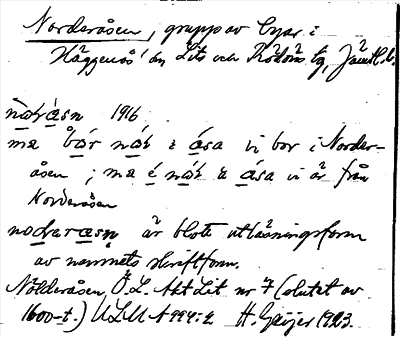 Norderåsen, grupp av byar i
Häggenås' sn, Lits och Rödöns tg, Jämtl. l.
1916
ma bår nák i ása vi bor i Norder-
åsen ; ma é nák i ása vi är från
Norderåsen
är blott utläsningsform
av namnets skriftform.
Nölderåsen Ö.L. Akt Lit nr 7 (slutet av
1600-t.) ULMA 994:2 H. Geijer 1923.